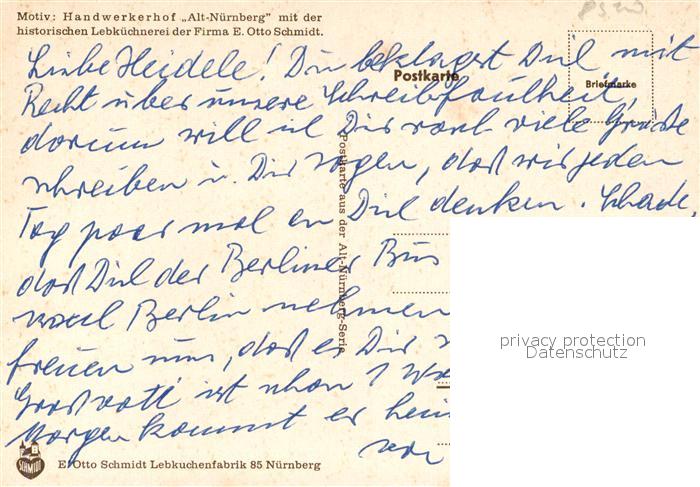 Motiv: Handwerkerhof „Alt-Nürnberg" mit der
historischen Lebküchnerei der Firma E. Otto Schmidt.
Liebe Heidele! Du beklagest Dich mit
Postkarte
Briefmarke
Recht über unsere Schreibfaulheit,
darum will ich Dir noch viele Grüße
schreiben u. Dir sagen, daß wir jeden
Tag paar mal an Dich denken. Schade,
daß Dich der Berliner Bus
nach Berlin nehmen
freuen uns, daß es Dir
Großvati ist schon 1
Morgen kommt er
von
Postkarte aus der Alt-Nürnberg-Serie
privacy protection
Datenschutz
SCHMIDT
E. Otto Schmidt Lebkuchenfabrik 85 Nürnberg